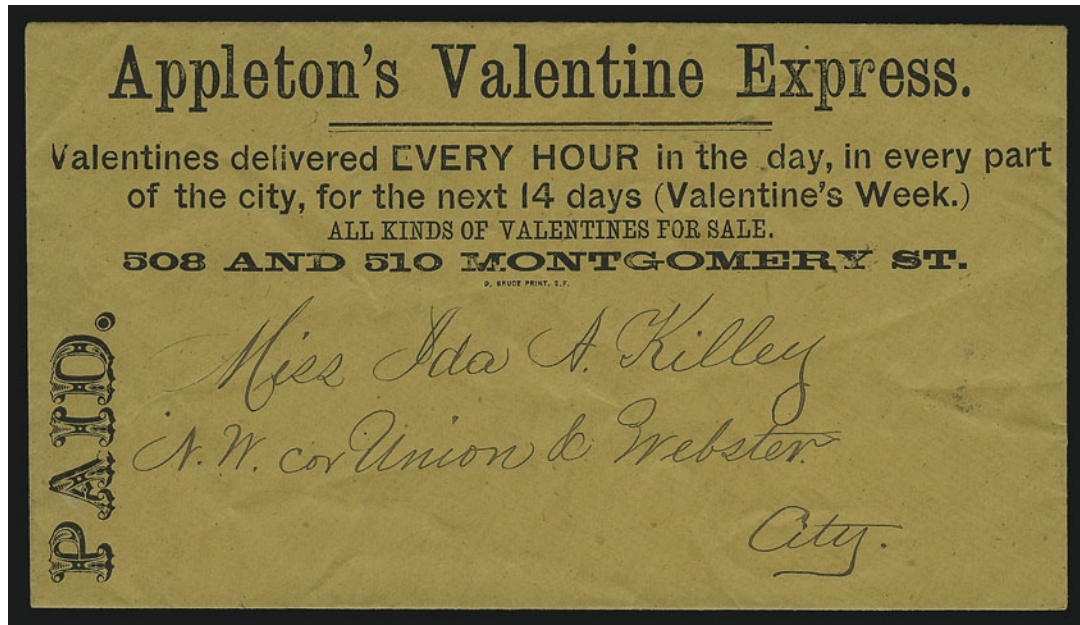 Appleton's Valentine Express.
Valentines delivered EVERY HOUR in the day, in every part
of the city, for the next 14 days (Valentine's Week.)
ALL KINDS OF VALENTINES FOR SALE.
508 AND 510 MONTGOMERY ST.
D. BRUCE PRINT, S.F.
PAID.
Miss Ida A. Killey
N.W. cor Union & Webster
City.